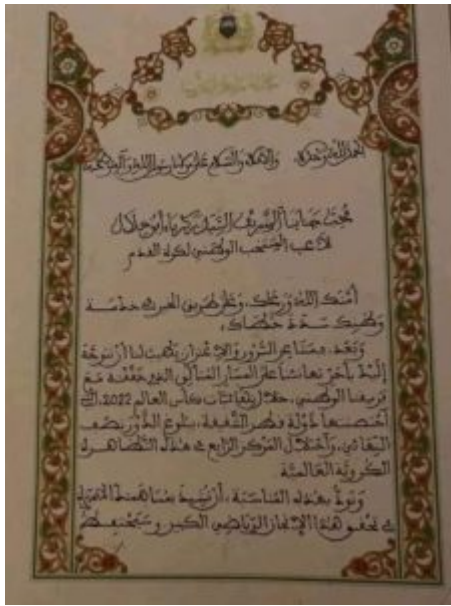 الحمد لله وحده، والصلاة والسلام على مولانا رسول الله وآله وصحبه
محب جنابنا الشريف السيد زكرياء أبو خلال
لاعب المنتخب الوطني لكرة القدم
أمنك الله ورعاك، وعلى طريق الخير في خدمة
وطنك سدد خطاك،
وبعد، فمن دواعي السرور والاعتزاز أن نتوجه
إليك بأحر تهانئنا على المسار المتألق الذي حققته مع
فريقنا الوطني، خلال نهائيات كأس العالم 2022، التي
احتضنتها دولة قطر الشقيقة، ببلوغ الدور نصف
النهائي، واحتلال المركز الرابع في هذه التظاهرة
الكروية العالمية.
ونود بهذه المناسبة، أن نشيد بمساهمتك
في تحقيق هذا الإنجاز الرياضي الكبير